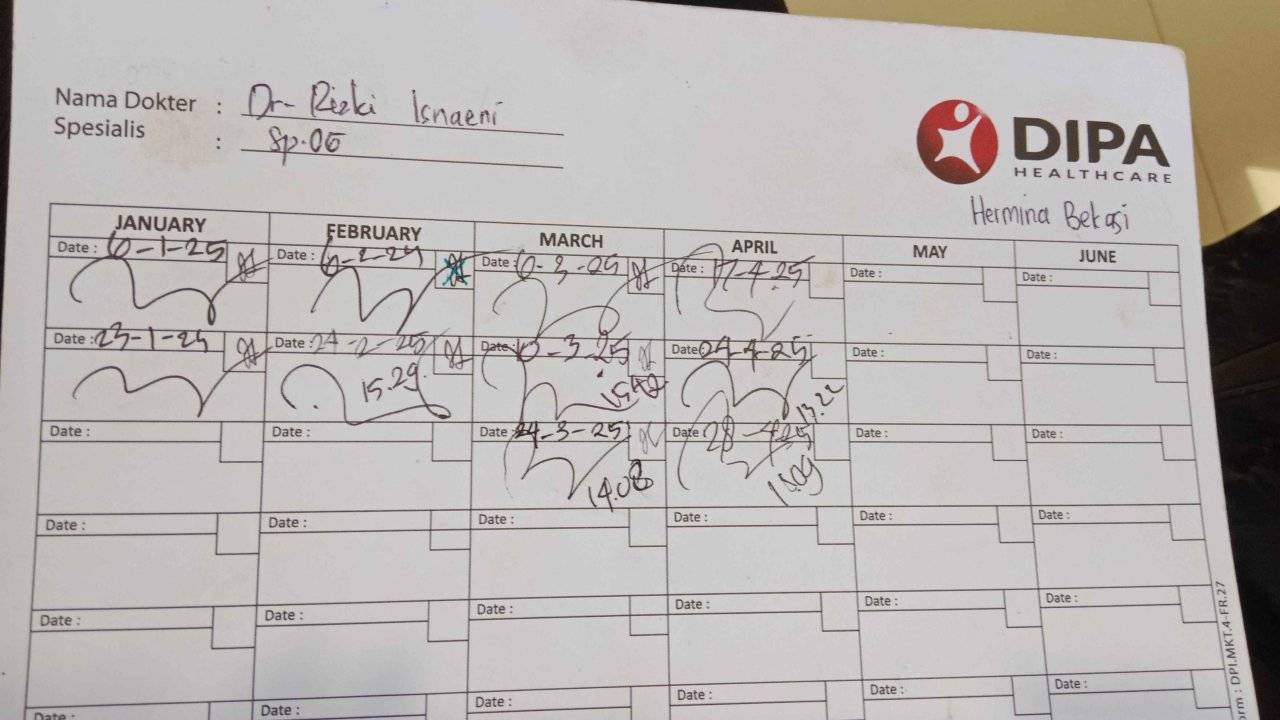 Nama Dokter : Dr- Rizki Isnaeni
Spesialis : Sp.OG
DIPA
HEALTHCARE
Hermina Bekasi
JANUARY FEBRUARY MARCH APRIL MAY JUNE
Date : 6-1-25 Date : 6-2-25 Date : 6-3-25 Date : 17-4-25 Date : Date :
Date : 23-1-25 Date : 24-2-25 Date : 10-3-25 Date : 24-4-25 Date : Date :
15.29. 13.22
Date : Date : Date : 24-3-25 Date : 28-4-25 Date : Date :
14.08
Date : Date : Date : Date : Date : Date :
Date : Date : Date : Date : Date : Date :
Date : Date : Date : Date : Date : Date :
orm : DPI.MKT.4-FR.27